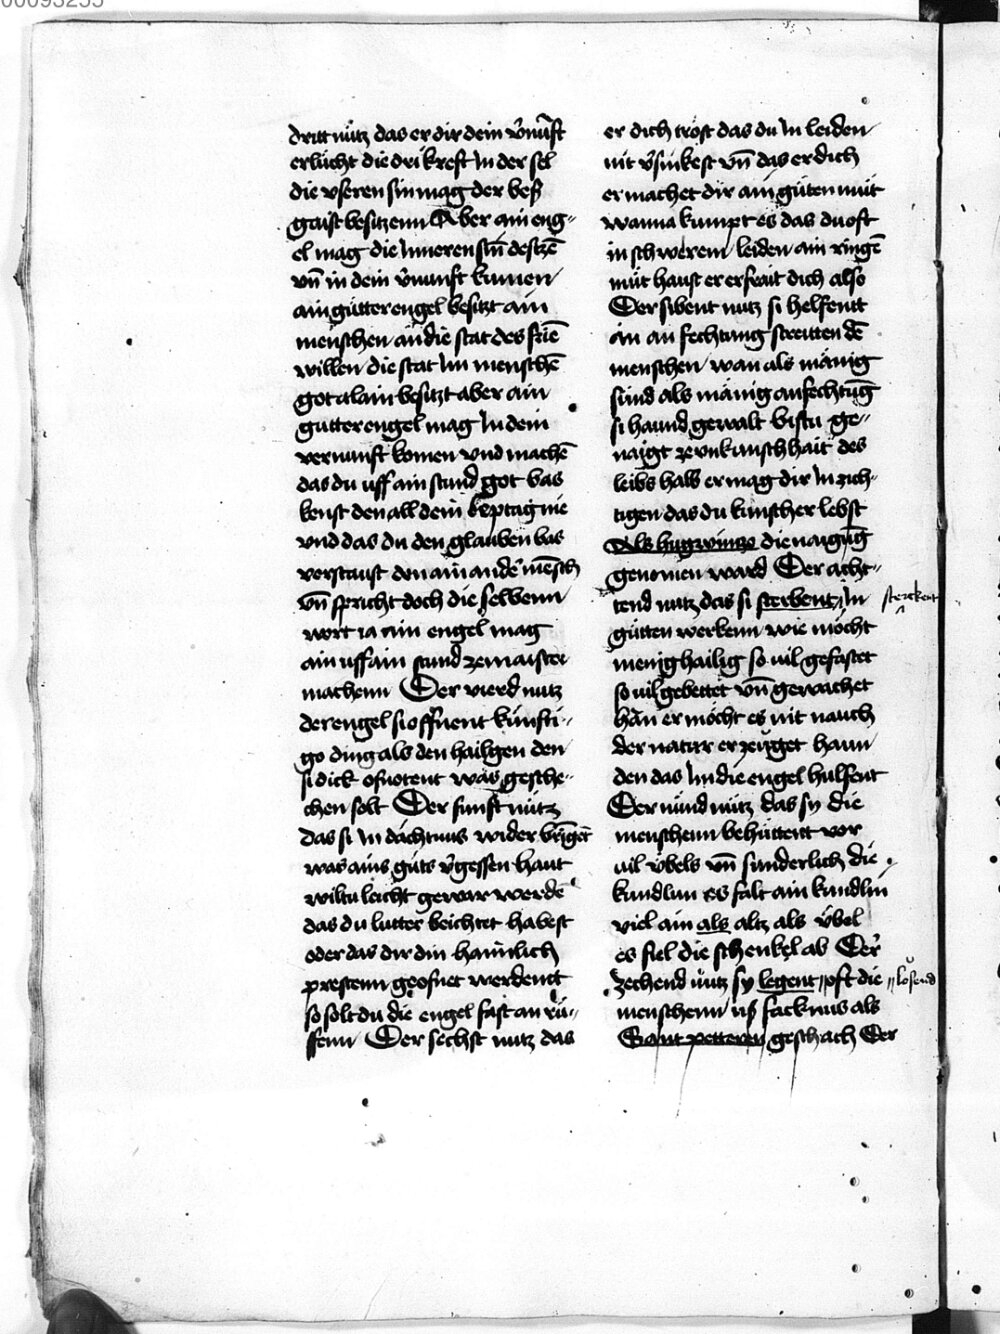 00093255
dritt nutz das er dir dein v̄nūft
erlücht die dri kreft in der sel
die vseren sin mag der böß
gaist besitzenn Aber ain eng⸗
el mag die Innerenstn̄ besitzē
vn̄ in dein v̄nunft kumen
ain gutter engel besitzt ain
menschen an die stat des friē
willen die stat Im menschē
got alain besitzt aber ain
gutter engel mag In dein
vernunft komen vnd machē
das du uff ain stund got bas
kenst den all dein leptag nie
vnd das du den glauben bas
verstaust den ain andē mēsch
vn̄ spricht doch die selbenn
wort ia ain engel mag
ain uff ain stund ze maister
machenn Der vierd nutz
der engel si offnent künfti⸗
go ding als den hailgen den
si dick ofnotent was gesche⸗
chen solt Der funft nütz
das si In dächtnus wider br̄īget
was ains guts v̄gessen haut
wiltu leicht gewar werdē
das du lutter beichtet habest
oder das dir din haimlich
prestenn geofnet werdent
so solt du die engel fast an rü⸗
ffenn Der sechst nutz das
er dich tröst das du In leiden
nit v̄sinkest vn̄ das er dich
er machet dir ain güten müt
wanna kumpt es das du oft
in schwerem leiden ain ringē
müt haust er erfrait dich also
Der sibent nutz si helfent
an an fechtung streitten dē
menschen wan als mänig
sünd als mänig anfechtūg
si haund gewalt bistu ge⸗
naigt ze vnkünschhait des
leibs halb er mag dir In zich⸗
tigen das du künscher lebst
Als hugwinus die naigūg
genomen ward Der acht⸗
tend nutz das si sterbent In
sterckent
gütten werkenn wie möcht
menig hailig so uil gefastet
so uil gebettet vn̄ gewachet
hān er möcht es nit nauch
der natur erzeüget hann
den das Im die engel hulfent
Der nünd nütz das sy die
menschenn behüttent vor
uil vbels vn̄ sunderlich die
kundlun es falt ain kindlin
viel ain als altz als vbel
es fiel die schenkel ab Der̄
zechend nütz sy legent oft die
lösend
menschenn uß fäcknus als
Sant petteren geschach Der